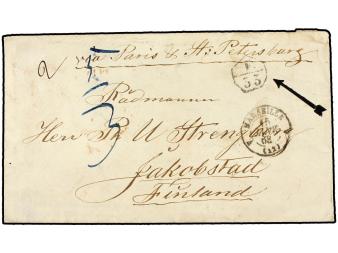 2 via Paris & St. Petersburg
F.
33
Rådmannen
Herr P. U Strengberg
MARSEILLE
(12)
Jakobstad
Finland